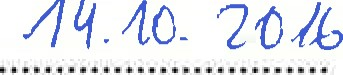 14.10. 2016